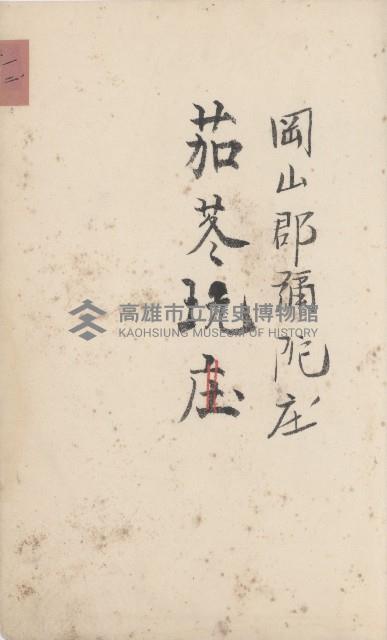 岡山郡彌陀庄
茄苳坑庄
一二
高雄市立歷史博物館
KAOHSIUNG MUSEUM OF HISTORY